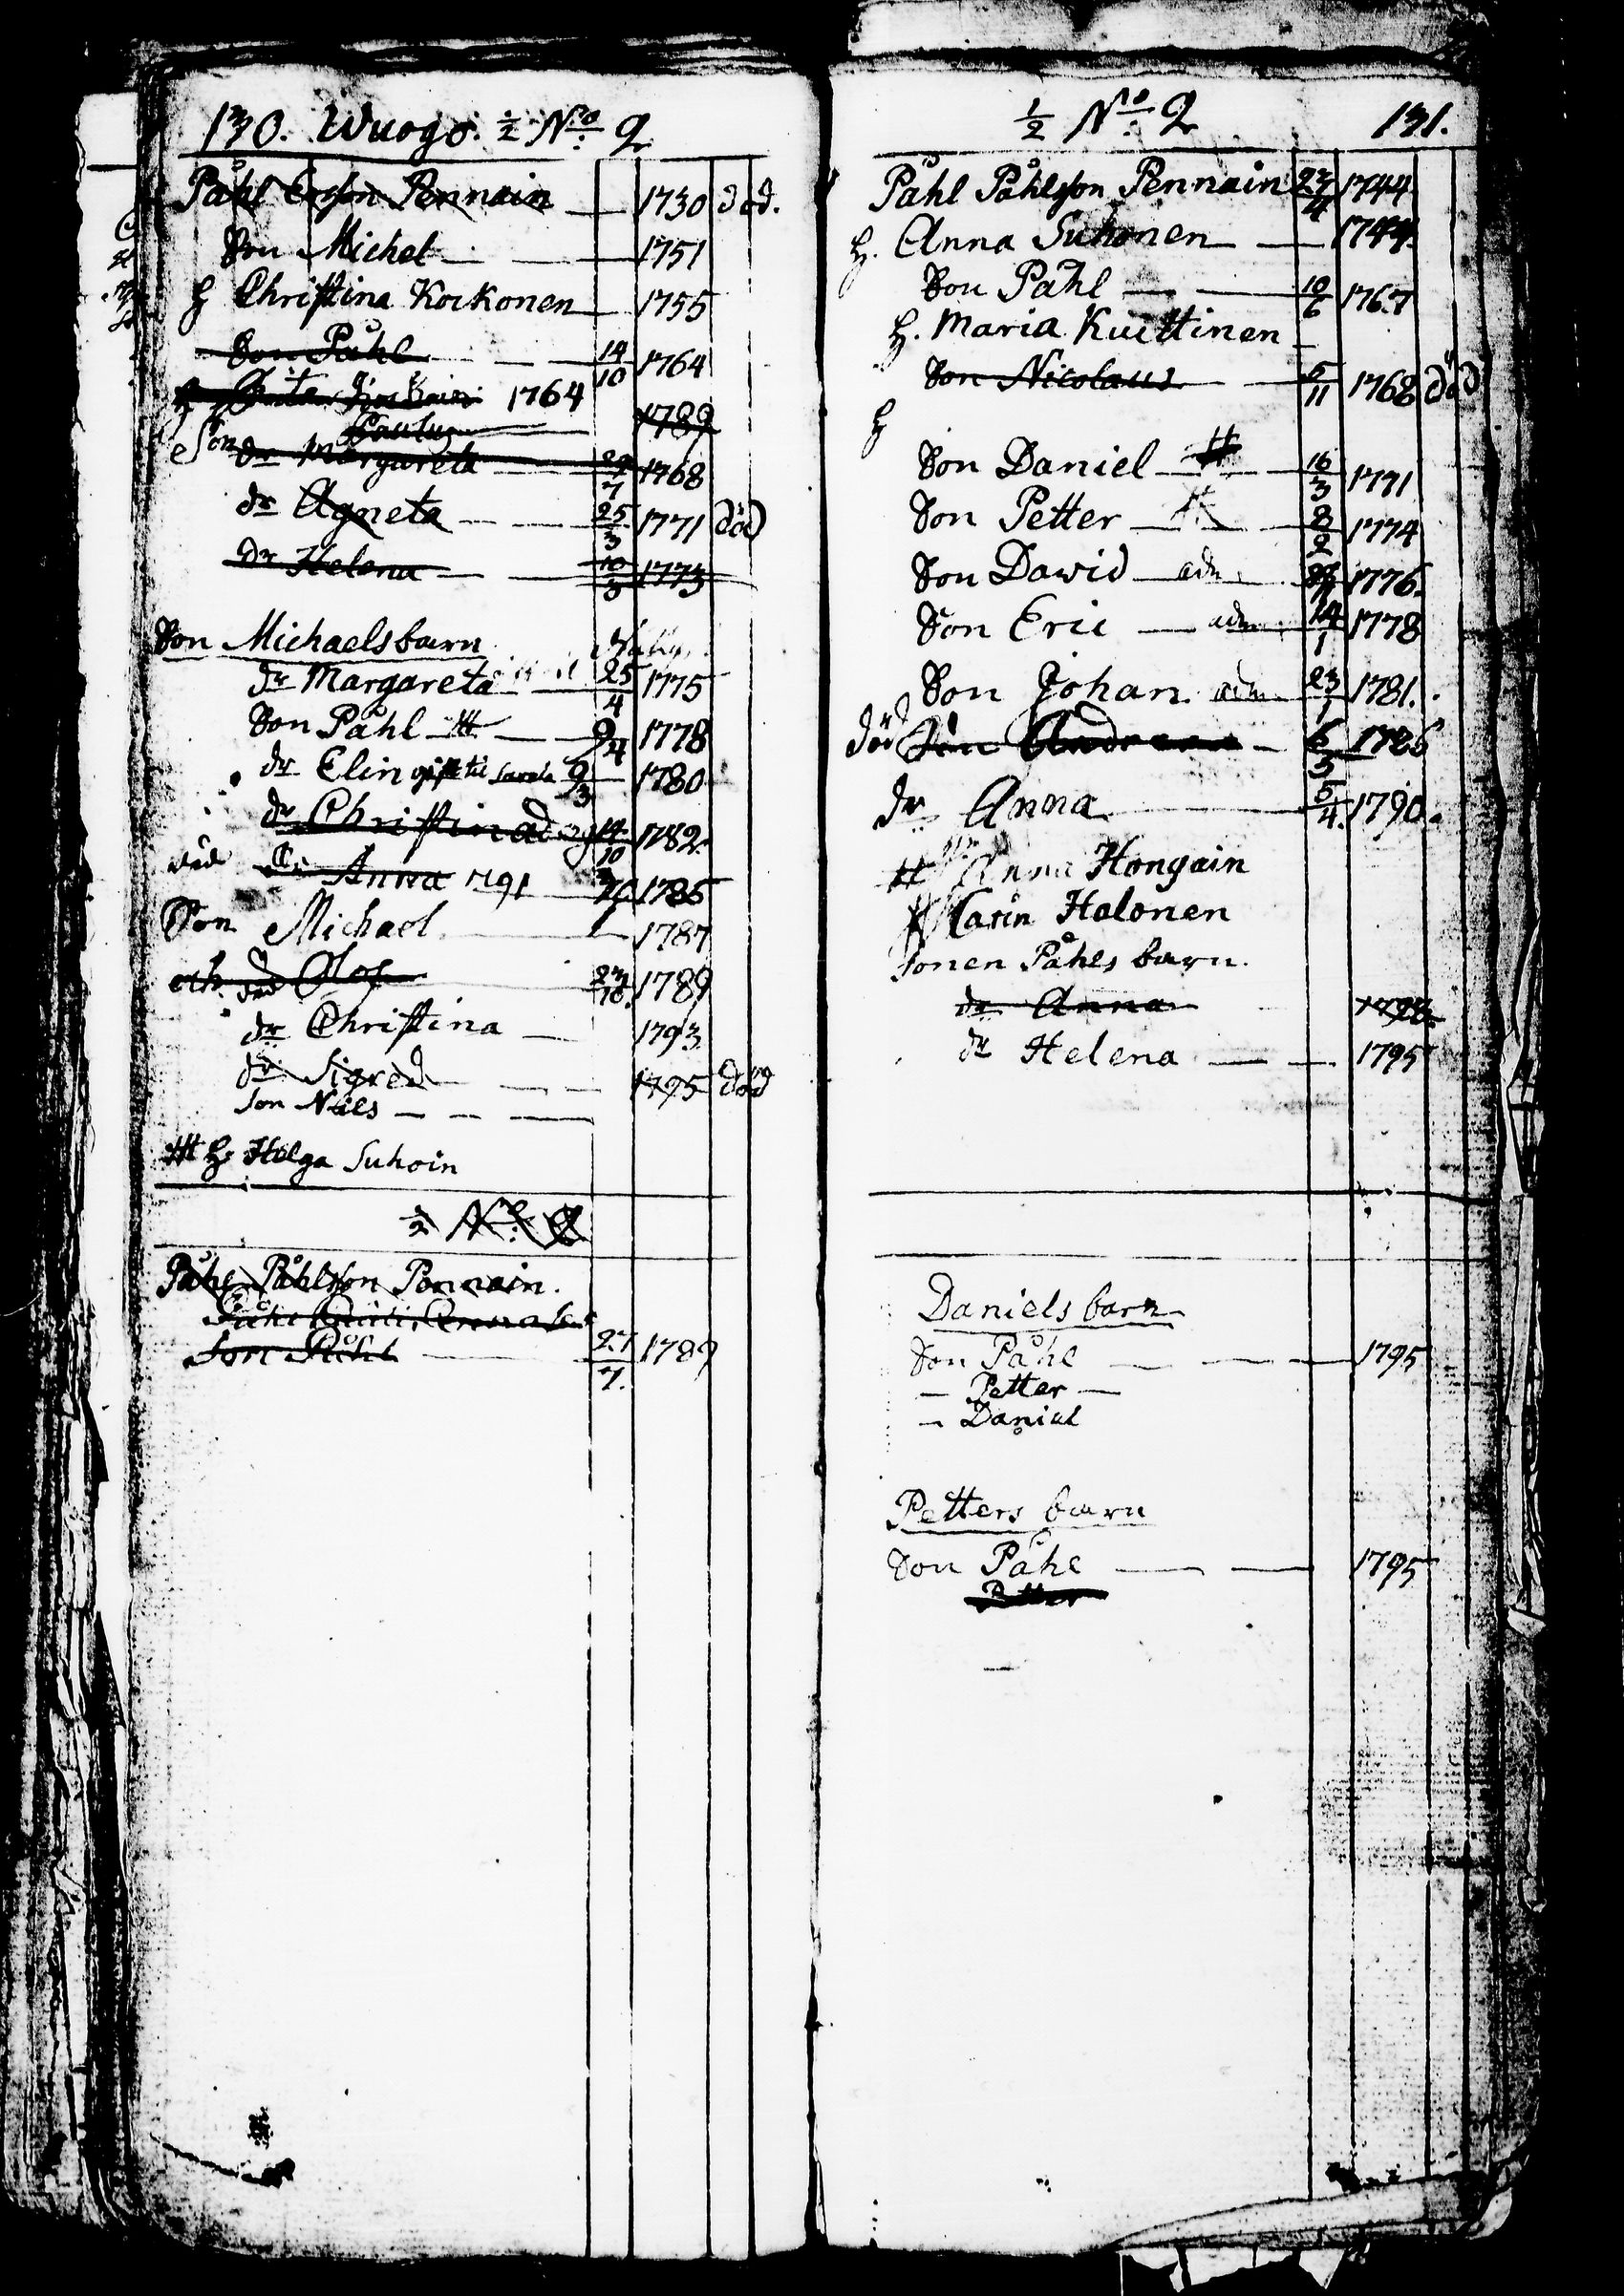 130. Wuogo. ½ No 2
Påhl Erson Pennain 1730 död.
Son Michel 1751
h Christina Kockonen 1755
Son Påhl 14/10 1764
h 1764
Son Paulus 1789
dr Margareta 7 1768
dr Agneta 25/3 1771 död
dr Helena 10/3 1773
Son Michaelsbarn
dr Margareta 25/4 1775
Son Påhl # 9/4 1778
dr Elin gift til 9/3 1780
dr Christina 14/10 1782
död dr Anna 1791 1785
Son Michael 1787
död Olof 23/10 1789
dr Christina 1793
dr Sigred 1795 död
Son Niels
# h. Helga Suhoin
½ No 2
Påhl Påhlsson Pennain.
Son Påhl 27/7. 1789
½ No 2 131.
Påhl Påhlsson Pennain 27/4 1744
h. Anna Suhonen 1744
Son Pahl 10/6 1767
h. Maria Kuittinen
Son Nicolaus 6/11 1768 död
h
Son Daniel # 16/3 1771
Son Petter 8/2 1774
Son Dawid adm 1776
Son Eric adm 14/1 1778
Son Johan adm 23/1 1781.
död Son Andreas 6/3 1786
dr Anna 5/4. 1790.
Anna Hongain
Carin Halonen
Sonen Påhls barn.
dr Anna
dr Helena 1795
Daniels barn
Son Påhl 1795
— Petter —
— Daniel
Petters barn
Son Påhl 1795
Petter